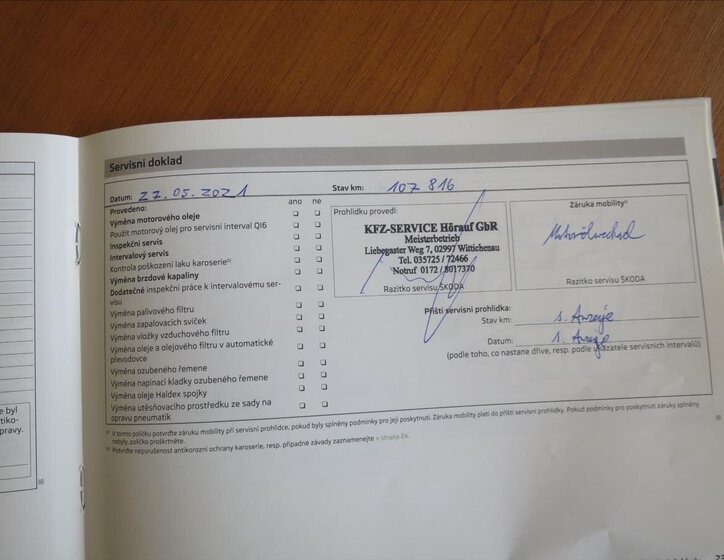 Servisní doklad
Datum: 27.05.2021
Stav km: 107 816
ano ne
Provedeno:
Výměna motorového oleje
Použit motorový olej pro servisní interval QI6
Inspekční servis
Intervalový servis
Kontrola poškození laku karoserie b)
Výměna brzdové kapaliny
Dodatečné inspekční práce k intervalovému ser-
visu
Výměna palivového filtru
Výměna zapalovacích svíček
Výměna vložky vzduchového filtru
Výměna oleje a olejového filtru v automatické
převodovce
Výměna ozubeného řemene
Výměna napínací kladky ozubeného řemene
Výměna oleje Haldex spojky
Výměna utěsňovacího prostředku ze sady na
opravu pneumatik
Prohlídku provedl:
KFZ-SERVICE Hörauf GbR
Meisterbetrieb
Liebegaster Weg 7, 02997 Wittichenau
Tel. 035725 / 72466
Notruf 0172 / 8017370
Razítko servisu ŠKODA
Záruka mobility a)
Motorölwechsel
Razítko servisu ŠKODA
Příští servisní prohlídka:
Stav km: s. Anzeige
Datum: s. Anzeige
(podle toho, co nastane dříve, resp. podle ukazatele servisních intervalů)
a) V tomto políčku potvrďte záruku mobility při servisní prohlídce, pokud byly splněny podmínky pro její poskytnutí. Záruka mobility platí do příští servisní prohlídky. Pokud podmínky pro poskytnutí záruky splněny
nebyly, políčko proškrtněte.
b) Potvrďte neporušenost antikorozní ochrany karoserie, resp. případné závady zaznamenejte » strana 24.
e byl
tiko-
pravy.